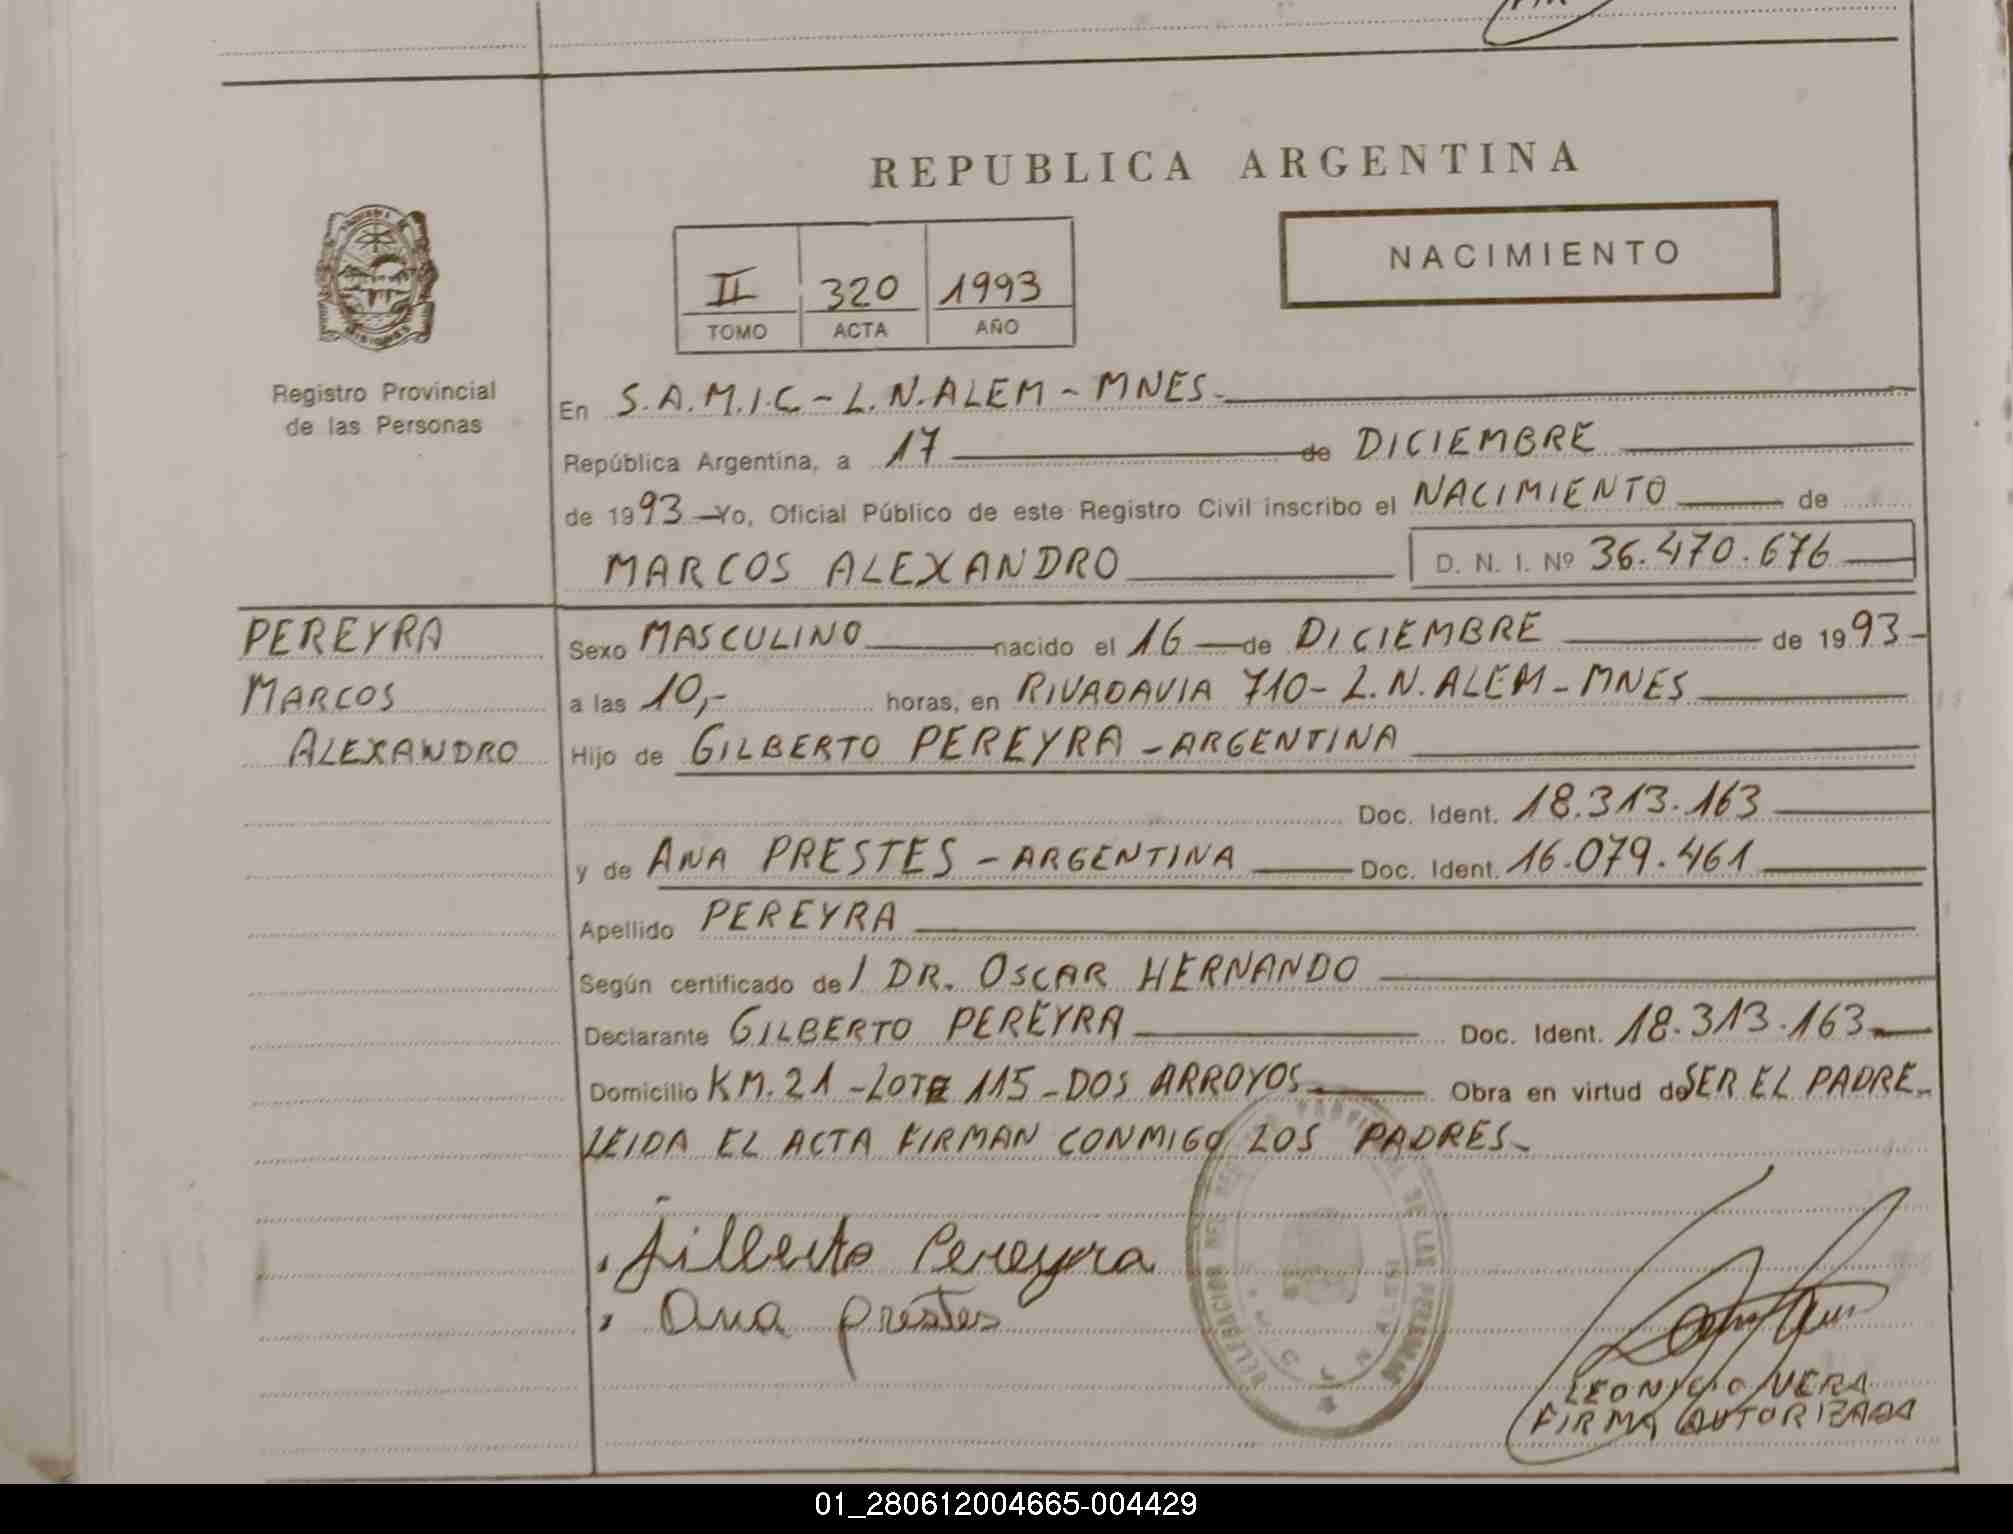 REPUBLICA ARGENTINA
NACIMIENTO
II 320 1993
TOMO ACTA AÑO
Registro Provincial
de las Personas
En S.A.M.I.C.- L.N.ALEM - MNES.
República Argentina, a 17 de DICIEMBRE
de 1993 Yo, Oficial Público de este Registro Civil inscribo el NACIMIENTO de
MARCOS ALEXANDRO D. N. I. Nº 36.470.676
PEREYRA
MARCOS
ALEXANDRO
Sexo MASCULINO nacido el 16 de DICIEMBRE de 1993-
a las 10,- horas, en RIVADAVIA 710- L.N.ALEM - MNES
Hijo de GILBERTO PEREYRA - ARGENTINA
Doc. Ident. 18.313.163
y de ANA PRESTES - ARGENTINA Doc. Ident. 16.079.461
Apellido PEREYRA
Según certificado de / DR. OSCAR HERNANDO
Declarante GILBERTO PEREYRA Doc. Ident. 18.313.163
Domicilio KM.21 - LOTE 115 - DOS ARROYOS Obra en virtud de SER EL PADRE-
LEIDA EL ACTA FIRMAN CONMIGO LOS PADRES-
Gilberto Pereyra
Ana prestes
DELEGACION DE LAS PERSONAS
LEONICIO VERA
FIRMA AUTORIZADA
01_280612004665-004429